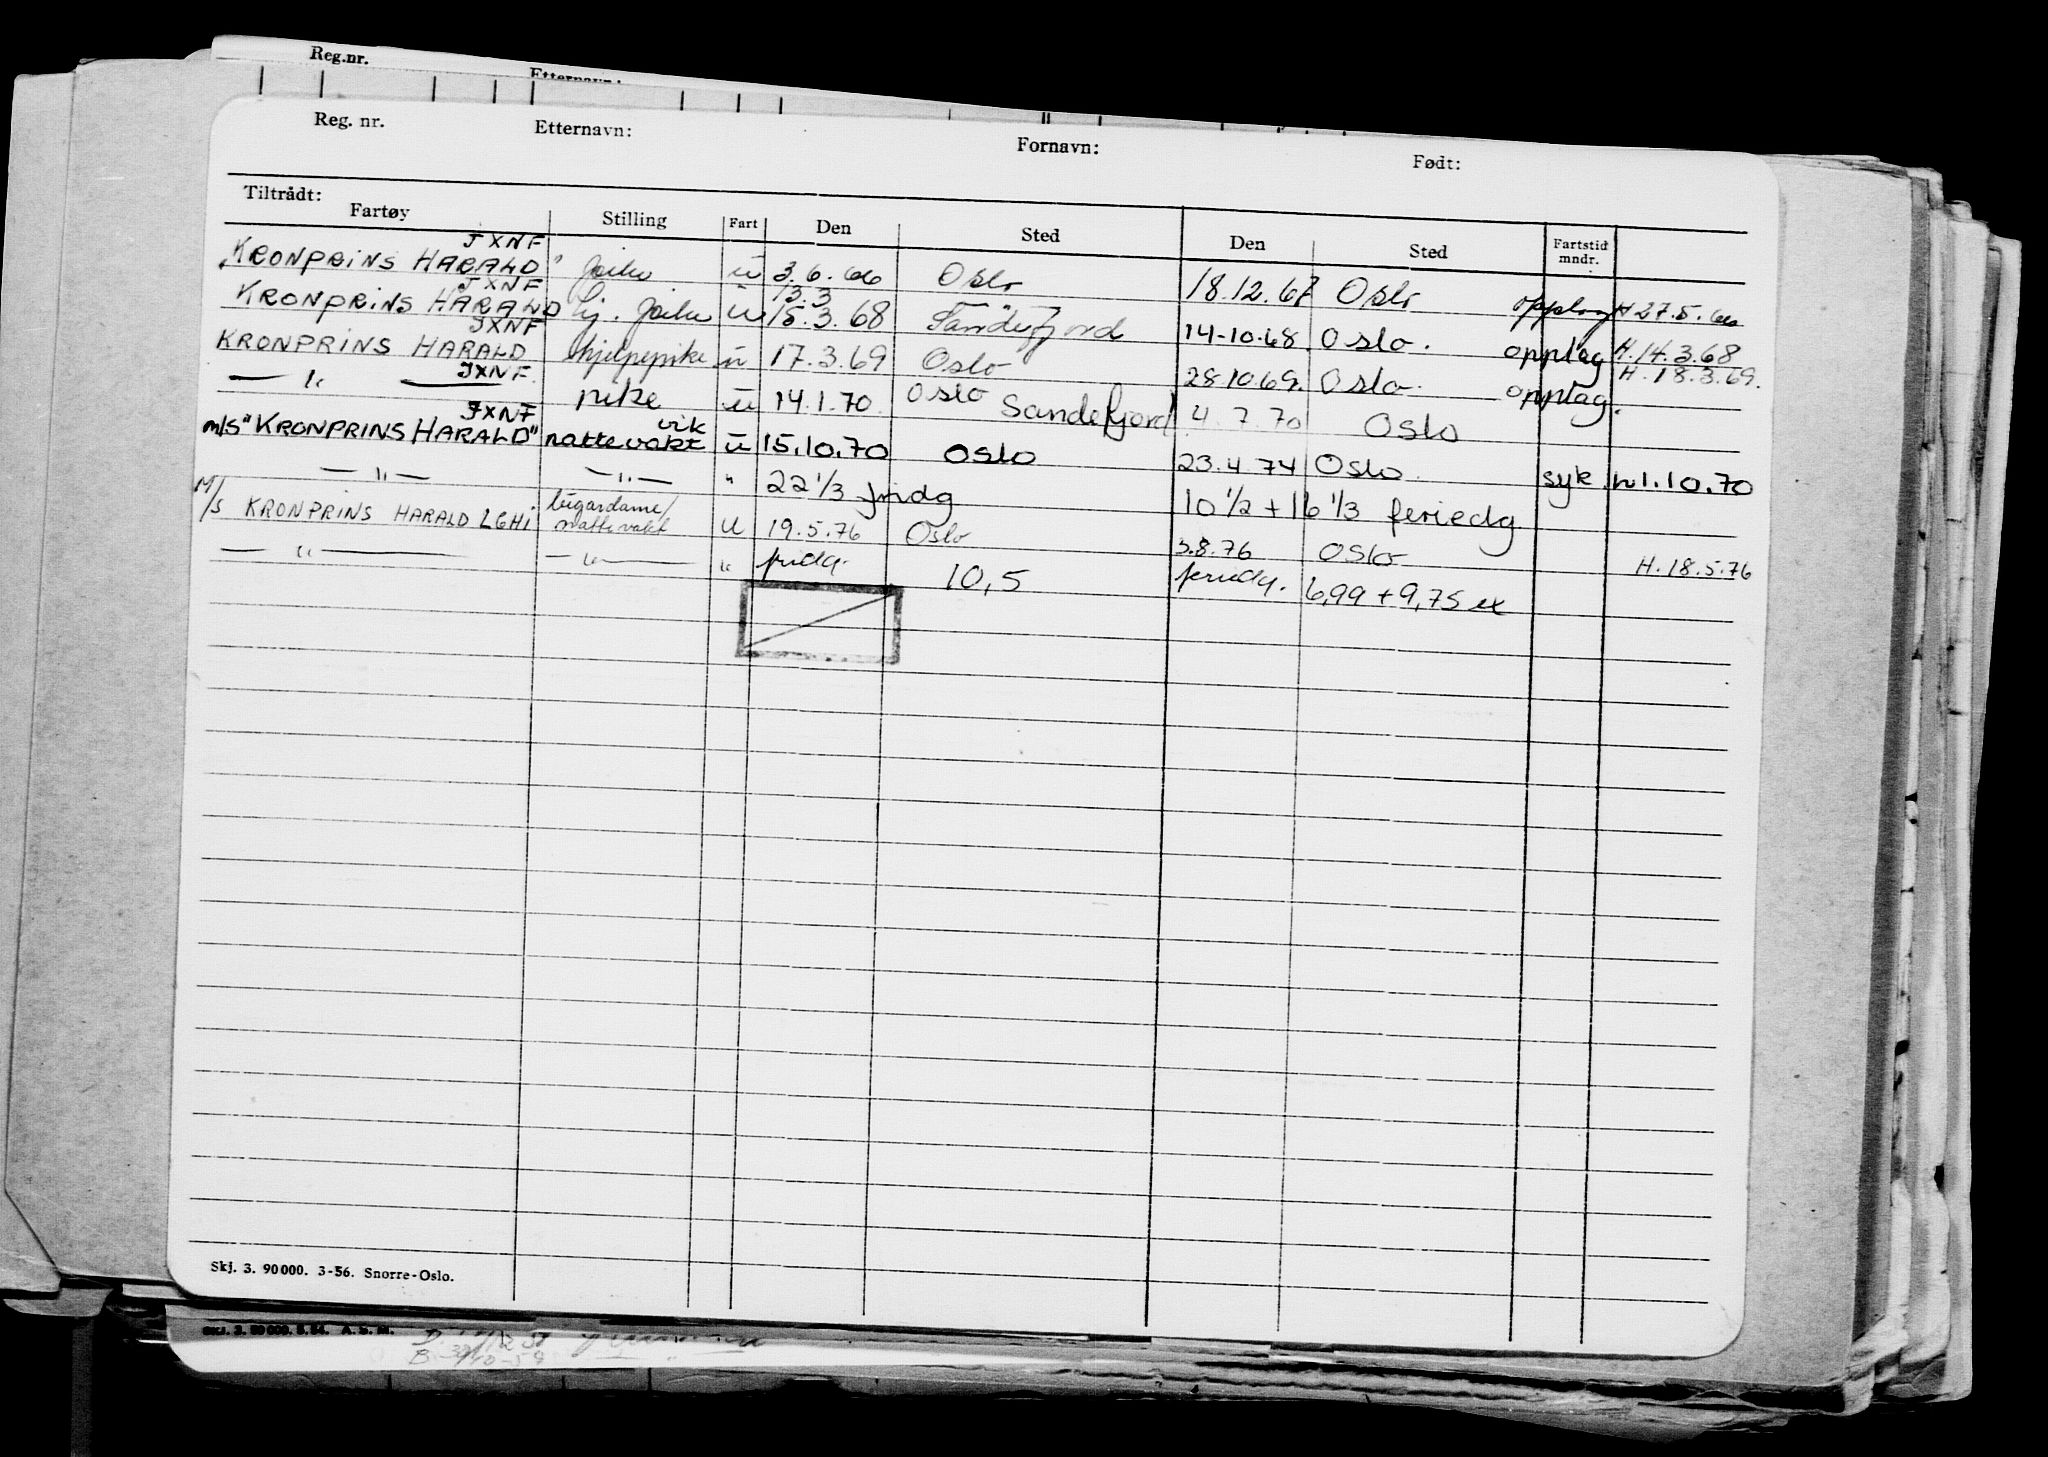 Reg.nr.
Etternavn:
Reg. nr. Etternavn: Fornavn: Født:
Tiltrådt:
Fartøy Stilling Fart Den Sted Den Sted Fartstid mndr.
JXNF
"KRONPRINS HARALD" u 3.6.66 Oslo 18.12.67 Oslo opplag H 27.5.66
JXNF 13.3
KRONPRINS HARALD hj. u 15.3.68 Sandefjord 14-10.68 Oslo. opplag H. 14.3.68
JXNF
KRONPRINS HARALD hjelpepike u 17.3.69 Oslo 28.10.69. Oslo. opplag. H. 18.3.69.
JXNF.
— " — pike u 14.1.70. Oslo Sandefjord 4.7.70 Oslo
JXNF vik
m/s "KRONPRINS HARALD" nattevakt u 15.10.70 Oslo 23.4.74 Oslo. syk. h 1.10.70
— " — — " — " 22 1/3 fridg 10 1/2 + 16 1/3 feriedg
M/S KRONPRINS HARALD LGHI lugardame/ nattevakt u 19.5.76 Oslo 3.8.76 Oslo H. 18.5.76
— " — — " — " fridg. 10,5 feriedg. 6,99 + 9,75 ex
Skj. 3. 90 000. 3-56. Snorre-Oslo.
SKJ. 3. 90 000. 5.54. A. S. M.